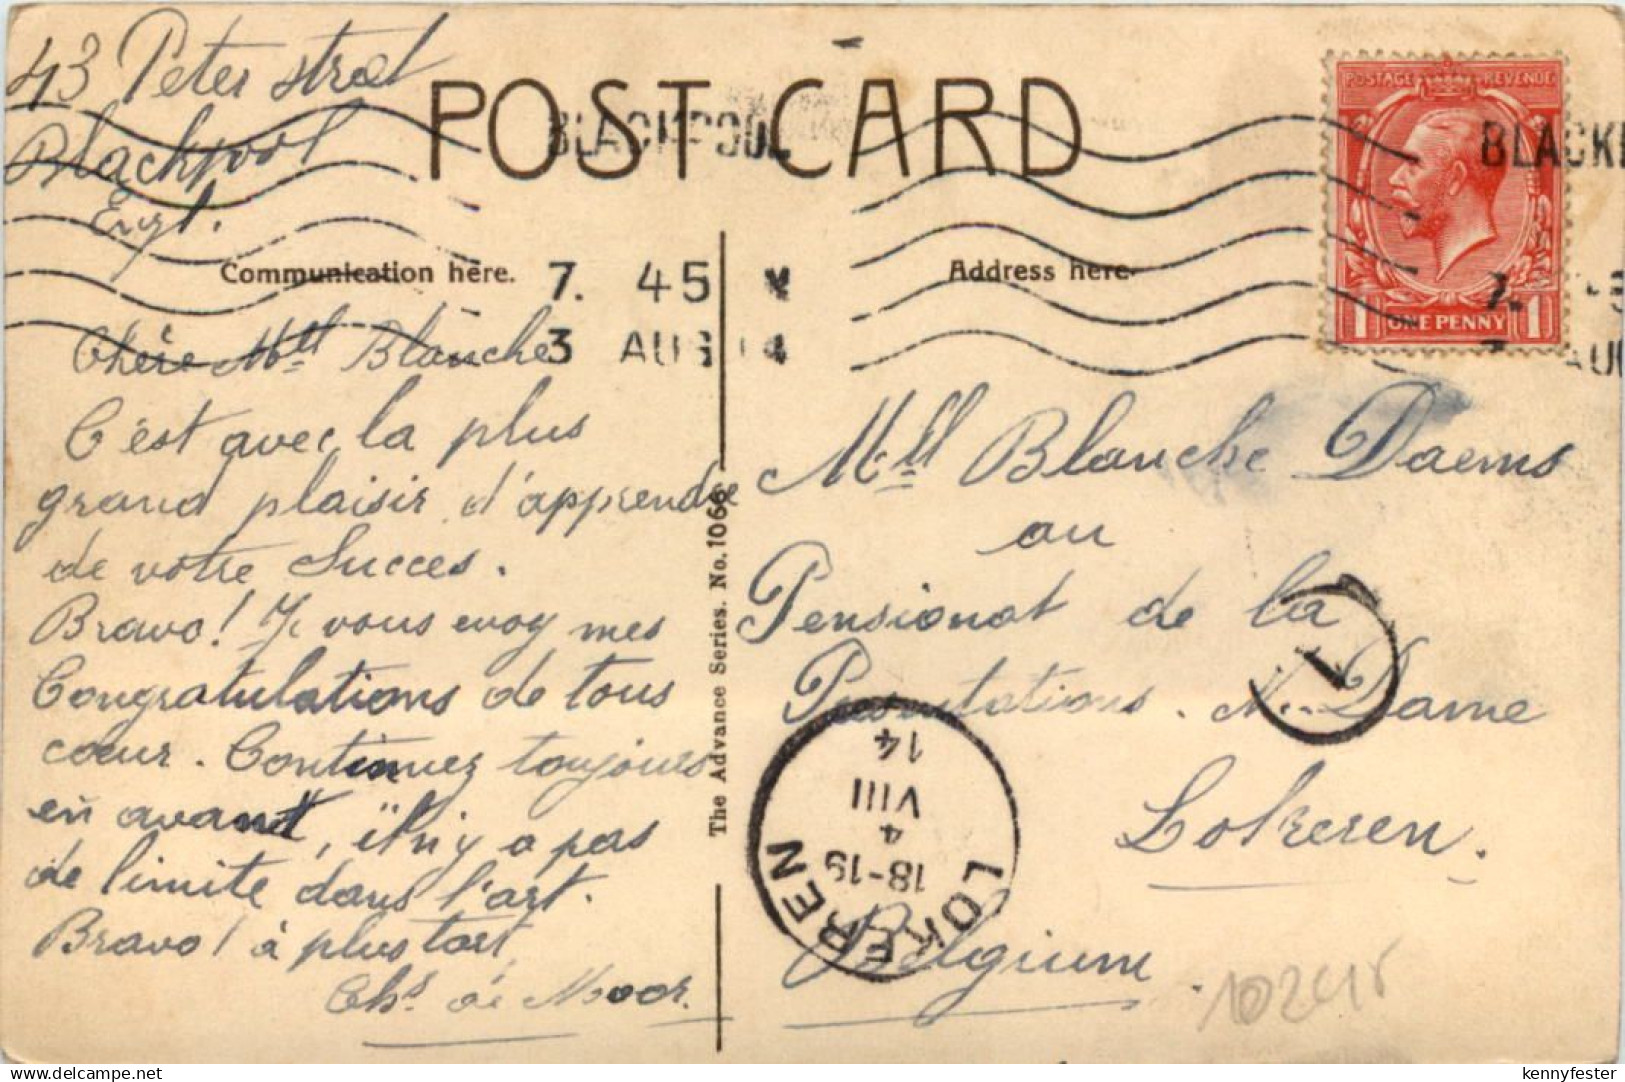 43 Peter street
Blackpool
Engl.
POST CARD
BLACKPOOL
7. 45 M
3 AUG 14
Communication here.
Address here.
POSTAGE REVENUE
1 ONE PENNY 1
BLACKP
Chère Mlle Blanche
C'est avec la plus
grand plaisir d'apprendre
de votre Succes.
Bravo! Je vous evoy mes
Congratulations de tous
cœur. Continuez toujours
en avant, il n'y a pas
de limite dans l'art.
Bravo! à plus tart
Chs de Moor.
The Advance Series. No. 1066
Mlle Blanche Daems
au
Pensionat de la
Presentations. N. Dame
Lokeren.
Belgium.
1
LOKEREN
18-19
4
VIII
14
10245
delcampe.net
kennyfester